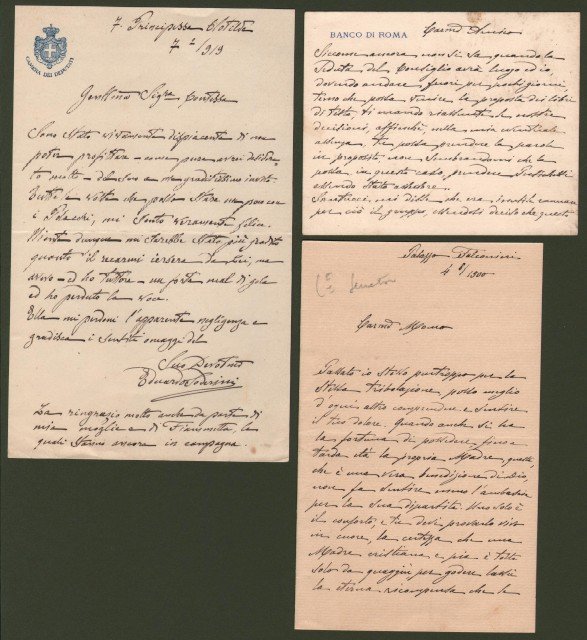 CAMERA DEI DEPUTATI
7. Principessa Clotilde
7 1/919
Gentilma Sigra Contessa
Sono stato vivamente dispiacente di non
poter profittare come pure avrei deside-
rato molto del suo a me graditissimo invito.
Tutte le volte che posso stare un poco con
i Polacchi, mi sento veramente felice.
Niente dunque mi sarebbe stato più gradito
quanto il recarmi iersera da Lei, ma
avevo ed ho tuttora un forte mal di gola
ed ho perduto la voce.
Ella mi perdoni l'apparente negligenza e
gradisca i sentiti omaggi del
Suo Devotmo
Edoardo Soderini
La ringrazio molto anche da parte di
mia moglie e di Fiammetta, le
quali stanno ancora in campagna.
BANCO DI ROMA
Carmo
Siccome ancora non si sa quando la
seduta del Consiglio avrà luogo ed io,
dovendo andare fuori per pochi giorni,
temo che possa venire la proposta dei
di Tittà ti mando riassunte le nostre
decisioni, affinchè, nella mia eventuale
assenza, tu possa prendere la parola
in proposito non sembrandomi che lo
possa in questo caso, prendere
essendo stato assessore.
Santucci mi disse che era
per ciò il gruppo,
Palazzo Falconieri
4 9/1900
Carmo
Passato io stesso purtroppo per la
stessa tribolazione, posso meglio
d'ogni altro comprendere e sentire
il tuo dolore. Quando anche si ha
la fortuna di possedere fino a
tarda età la propria Madre, questa,
che è una vera benedizione di Dio,
non fa sentire meno l'ambascia
per la sua dipartita. Uno solo è
il conforto, e tu devi provarlo vivo
in cuore, la certezza che una
Madre cristiana e pia è tolta
solo da quaggiù per godere lassù
la eterna ricompensa che le